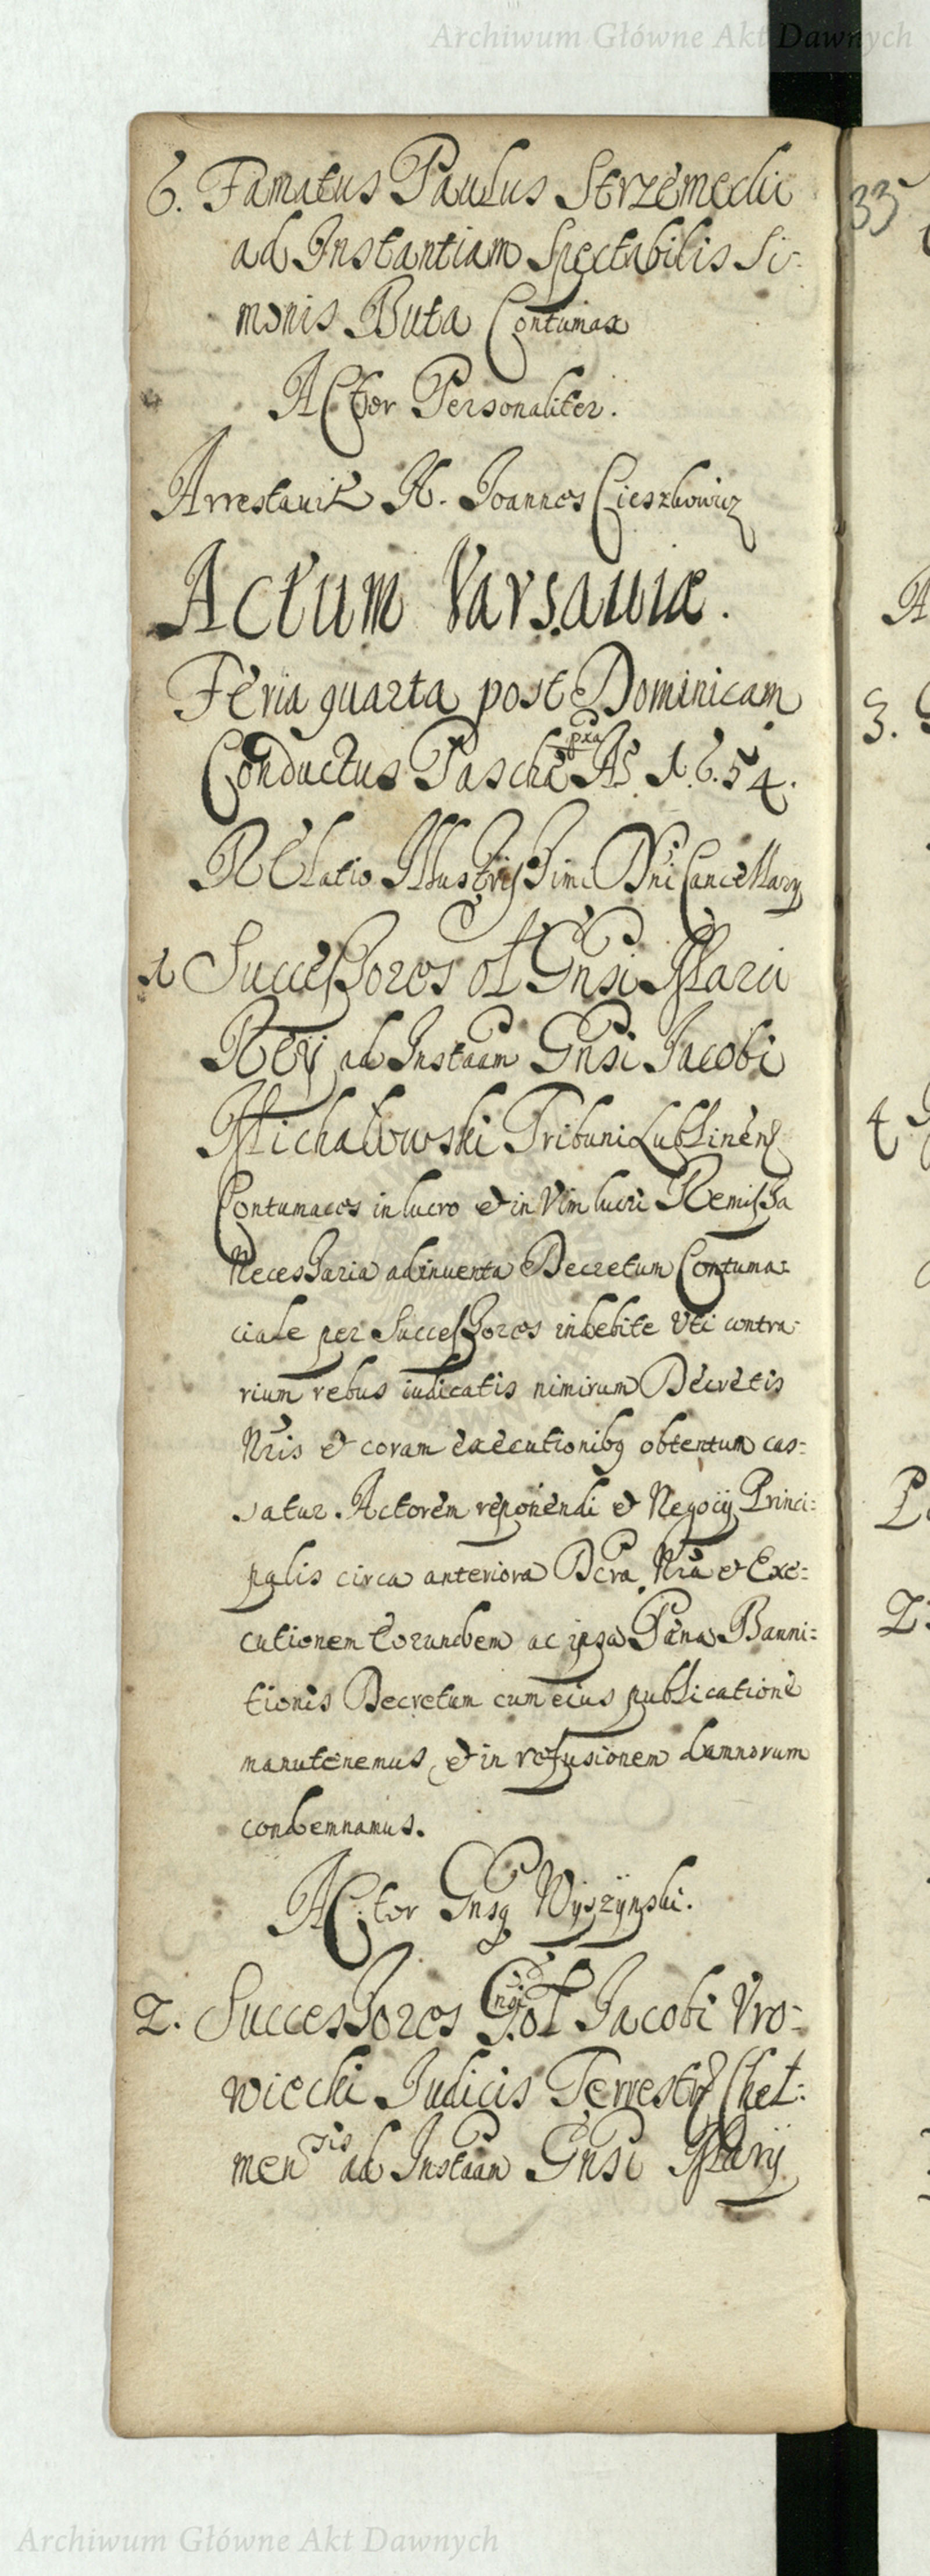 Archiwum Główne Akt Dawnych
6. Famatus Paulus Strzemecki
ad Instantiam Spectabilis Si-
monis Buta Contumax
Actor Personaliter.
Arrestavit N. Joannes Cieszkowicz
Actum Varsaviæ.
Feria quarta post Dominicam
Conductus Paschæ pxa Aº 1654.
Relatio Illustrissimi Dni Cancellarij
1 Successores ol Gnsi Marci
Reÿ ad Instaam Gnsi Jacobi
Michalowski Tribuni Lublinens
Contumaces in lucro & in vim lucri Remissa
Necessaria adinventa Decretum Contuma-
ciale per Successores indebite Uti contra-
rium rebus iudicatis nimirum Decretis
Nris & coram executionibq obtentum cas-
satur. Actorem reponendi & Negocij Princi-
palis circa anteriora Dcra Nra & Exe-
cutionem Eorundem ac ipsa Pæna Banni-
tionis Decretum cum eius publicatione
manutenemus, & in refusionem damnorum
condemnamus.
Actor Gnsq Wyszÿnski.
2. Successores Gnsi ol Jacobi Uro-
wiecki Judicis Terrestr Chel-
mensis ad Instaam Gnsi Marij
33
3.
4
2
Archiwum Główne Akt Dawnych